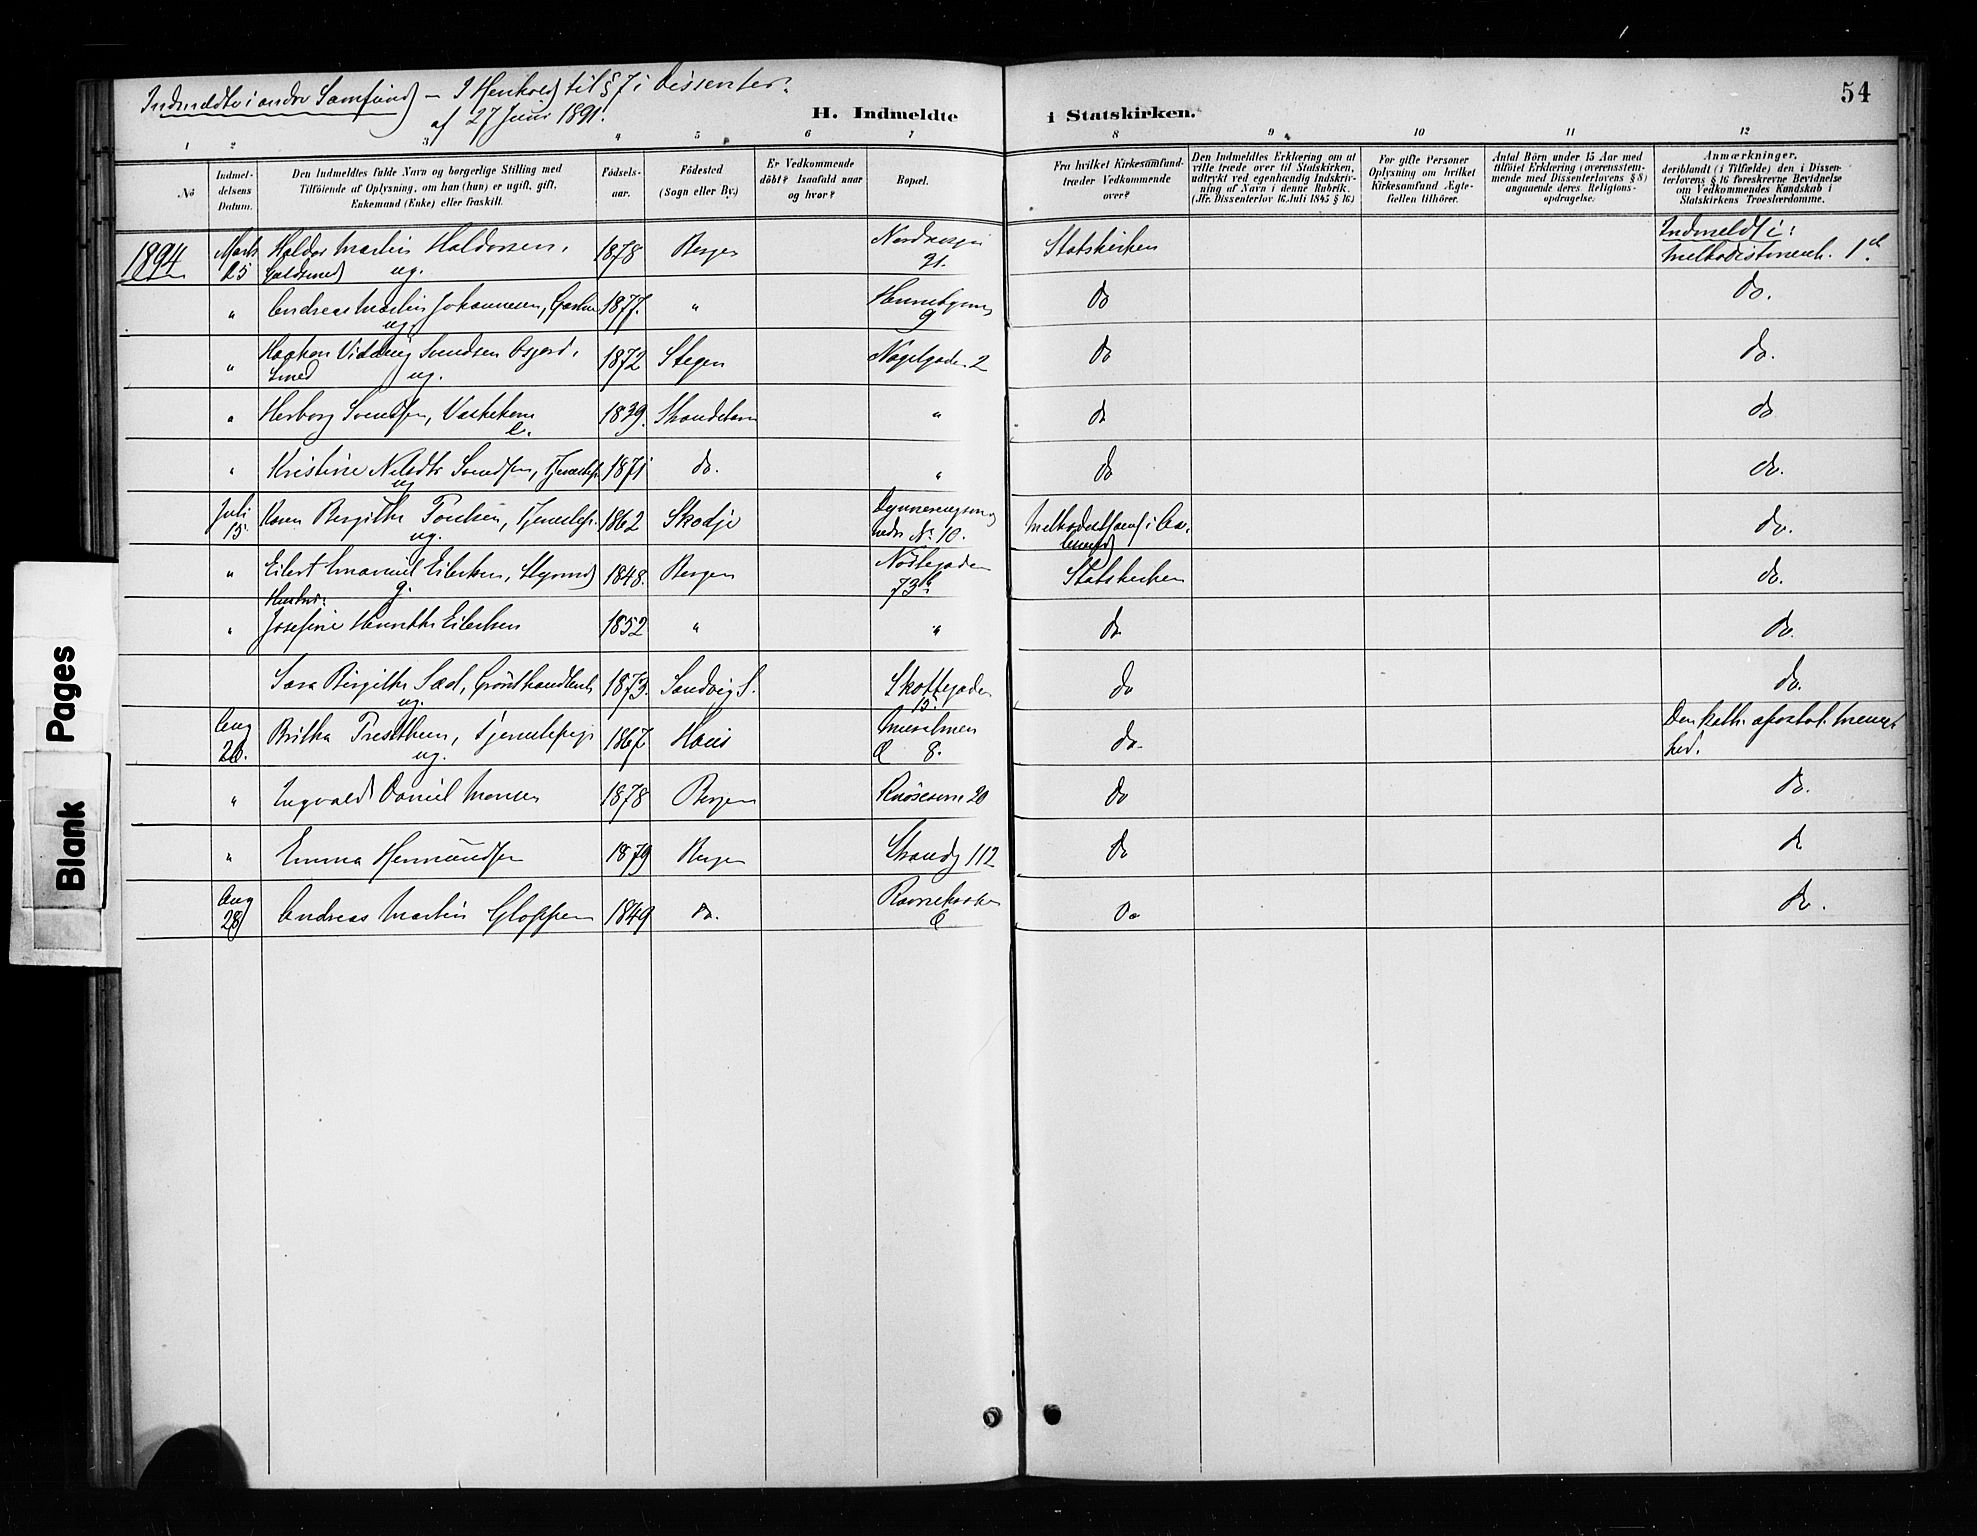 Indmeldte i andre Samfund – I Henhold til § 7 i Dissenter:
af 27 Juni 1891.
54
H. Indmeldte i Statskirken.
1 2 3 4 5 6 7 8 9 10 11 12
No
Indmeldelsens Datum.
Den Indmeldtes fulde Navn og borgerlige Stilling med
Tilföiende af Oplysning, om han (hun) er ugift, gift,
Enkemand (Enke) eller fraskilt.
Födselsaar.
Födested
(Sogn eller By.)
Er Vedkommende
döbt? Isaafald naar
og hvor?
Bopæl.
Fra hvilket Kirkesamfund
træder Vedkommende
over?
Den Indmeldtes Erklæring om at
ville træde over til Statskirken,
udtrykt ved egenhændig Indskrivning
af Navn i denne Rubrik.
(Jfr. Dissenterlov 16. Juli 1845 § 16)
For gifte Personer
Oplysning om hvilket
Kirkesamfund Ægtefællen
tilhörer.
Antal Börn under 15 Aar med
tilföiet Erklæring (overensstemmende
med Dissenterlovens § 8)
angaaende deres Religionsopdragelse.
Anmærkninger,
deriblandt (i Tilfælde) den i Dissenterlovens
§ 16 foreskrevne Bevidnelse
om Vedkommendes Kundskab i
Statskirkens Troeslærdomme.
1894 Marts 25 Haldor Martin Haldorsen, Guldsmed ug. 1878 Bergen 21. Statskirken Indmeldt i: Methodistmenh. 1ste
" Andreas Martin Johannesen, ug. 1877. " 9 do do.
" Haakon Vidding Svendsen Smed ug. 1872 Stegen Nagelgaden 2 do do.
" Herborg Svendsen, Vaskekone e. 1839. " do do
" Kristine Svendsen, ug 1871 do. " do do.
Juli 15. Karen Bergithe Poulsen, Tjenestep. ug. 1862 Skodje nedre No 10. do.
" Eilert Emanuel Eilertsen, Styrmand g. 1848. Bergen Nöstegaden 73 b Statskirken do.
" Hustru: Josefine Henrette Eilertsen 1852 " " do do.
Sara Birgitte Sæl, Grönthandlerske ug. 1873. Sandvig S. Skottegaden 15. do do.
Aug 26. Britha Trestheim, Tjenestepige ug. 1867 Haus 8. do. Den kath. apostol. menighed.
" Ingvald Daniel Monsen 1878 Bergen Knöscsmu 20 do do.
" Emma Hermundsen 1879 Bergen Strandg 112 do do
Aug 28 Andreas Martin Gloppen 1849 do. Do do.
Blank Pages